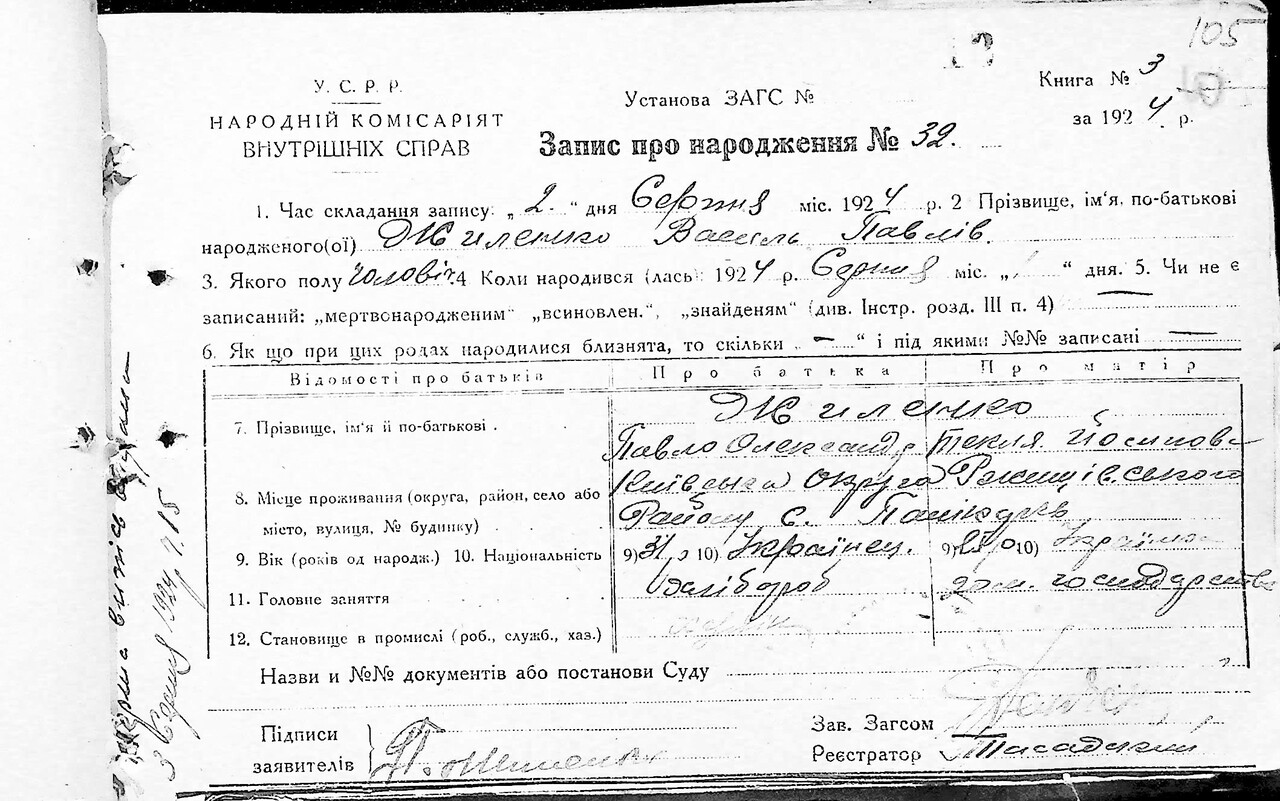 105
Книга № 3
У. С. Р. Р.
Установа ЗАГС №
за 1924 р.
НАРОДНІЙ КОМІСАРІЯТ
ВНУТРІШНІХ СПРАВ
Запис про народження № 32.
1. Час складання запису: „ 2. “ дня Серпня міс. 1924 р. 2 Прізвище, ім'я, по-батькові
народженого(ої) Жиленко Василь Павлів.
3. Якого полу чоловіч. 4 Коли народився (лась) 1924 р. Серпня міс. „ “ дня. 5. Чи не є
записаний: „мертвонародженим“ „всиновлен.“, „знайденям“ (див. Інстр. розд. III п. 4) —
6. Як що при цих родах народилися близнята, то скільки „ — “ і під якими №№ записані —
Відомості про батьків Про батька Про матір
Жиленко
7. Прізвище, ім'я й по-батькові .
Павло Олександр Текля Йосипов
Київська округа Ржищівського
8. Місце проживання (округа, район, село або
місто, вулиця, № будинку) Району с.
9. Вік (років од народж.) 10. Національність 9) 31 р 10) Українец. 9) 10)
11. Головне заняття Хлібороб дом. господарство
12. Становище в промислі (роб., служб., хаз.)
Назви и №№ документів або постанови Суду
Підписи
заявителів П. Жиленко
Зав. Загсом
Реєстратор
3 Серпня 1924 р.